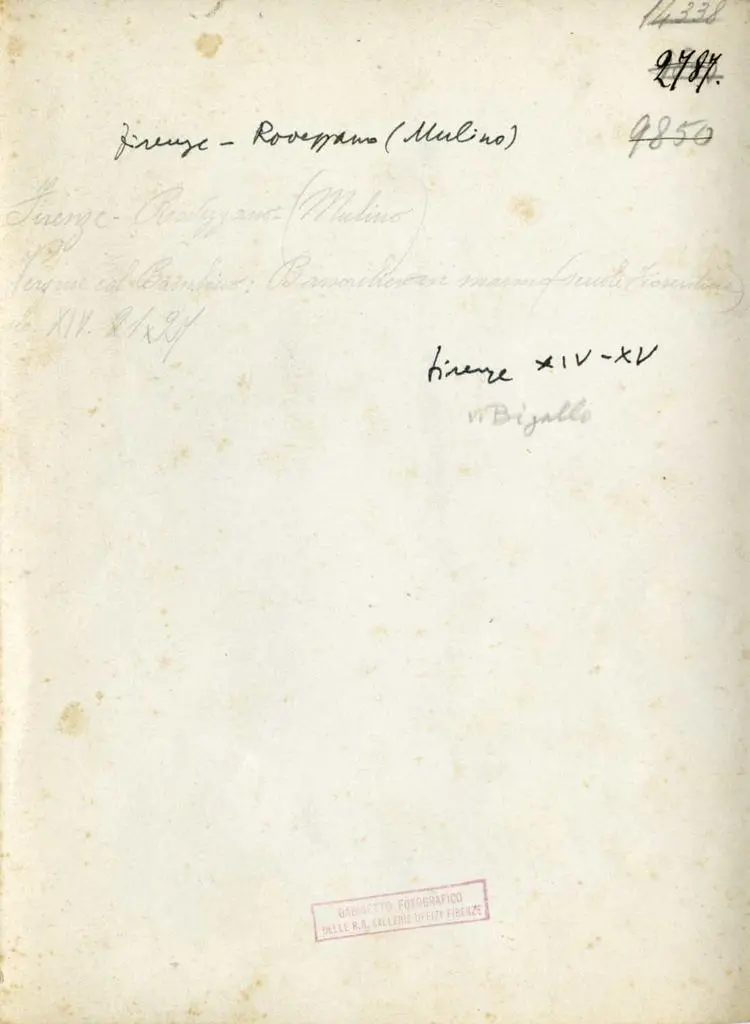 14338
2787.
9850
Firenze - Rovezzano (Mulino)
Firenze - Rovezzano - (Mulino)
Vergine col Bambino: in marmo (scuola fiorentina)
XIV. 21x27
Firenze XIV-XV
Bigallo
GABINETTO FOTOGRAFICO
DELLE R.R. GALLERIE UFFIZI FIRENZE